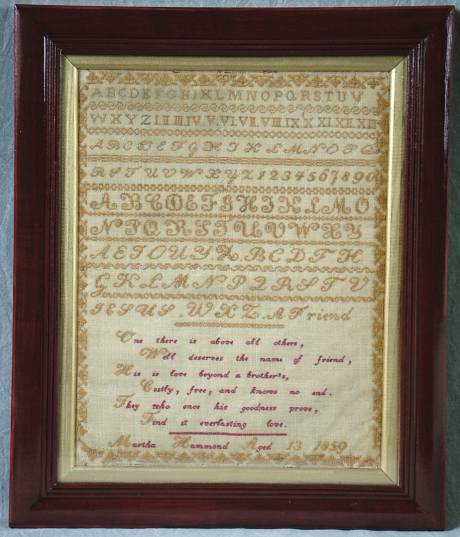 ABCDEFGHIKLMNOPQRSTUV
WXYZ I II III IV V VI VII VIII IX X XI XII XIII
ABCDEFGHIKLMNOPQ
RSTUVWXYZ1234567890
ABCDEFGHIKLMO
NPQRSTUVWXY
AEIOUY&.BCDFH
GKLMNPQRSTV
JESUS.WXZ.A Friend
One there is above all others,
Well deserves the name of friend,
His is love beyond a brother's,
Costly, free, and knows no end.
They who once his goodness prove,
Find it everlasting love.
Martha Hammond Aged 13 1859